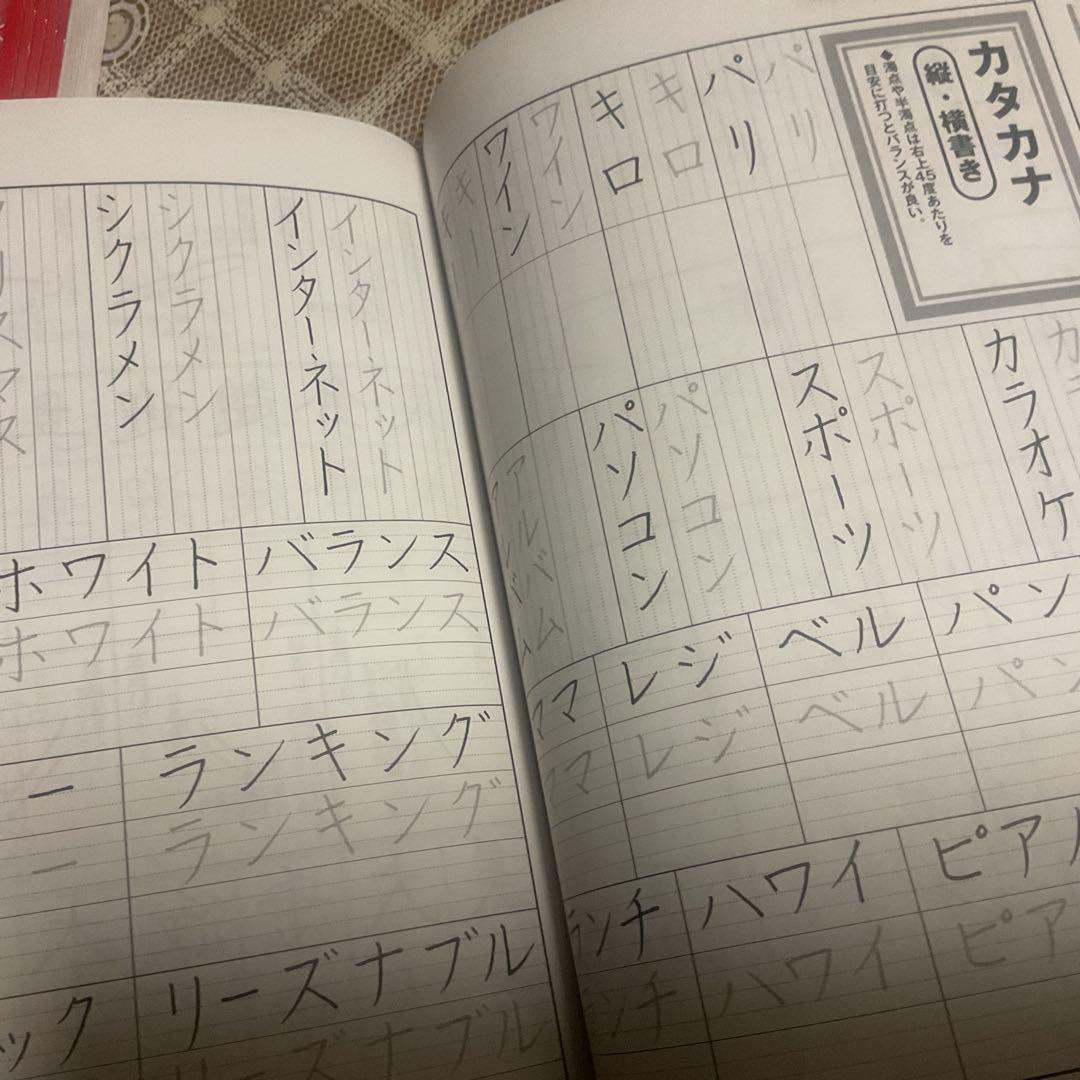 カタカナ
縦・横書き
◆濁点や半濁点は右上45度あたりを
目安に打つとバランスが良い。
パリ
パリ
キロ
キロ
ワイン
ワイン
カラオケ
スポーツ
スポーツ
パソコン
パソコン
アルバム
パン
パン
ベル
ベル
レジ
レジ
ママ
ママ
ピア
ピア
ハワイ
ハワイ
ンチ
ンチ
インターネット
インターネット
シクラメン
シクラメン
リスマス
バランス
バランス
ホワイト
ホワイト
ランキング
ランキング
ー
ー
リーズナブル
リーズナブル
ック